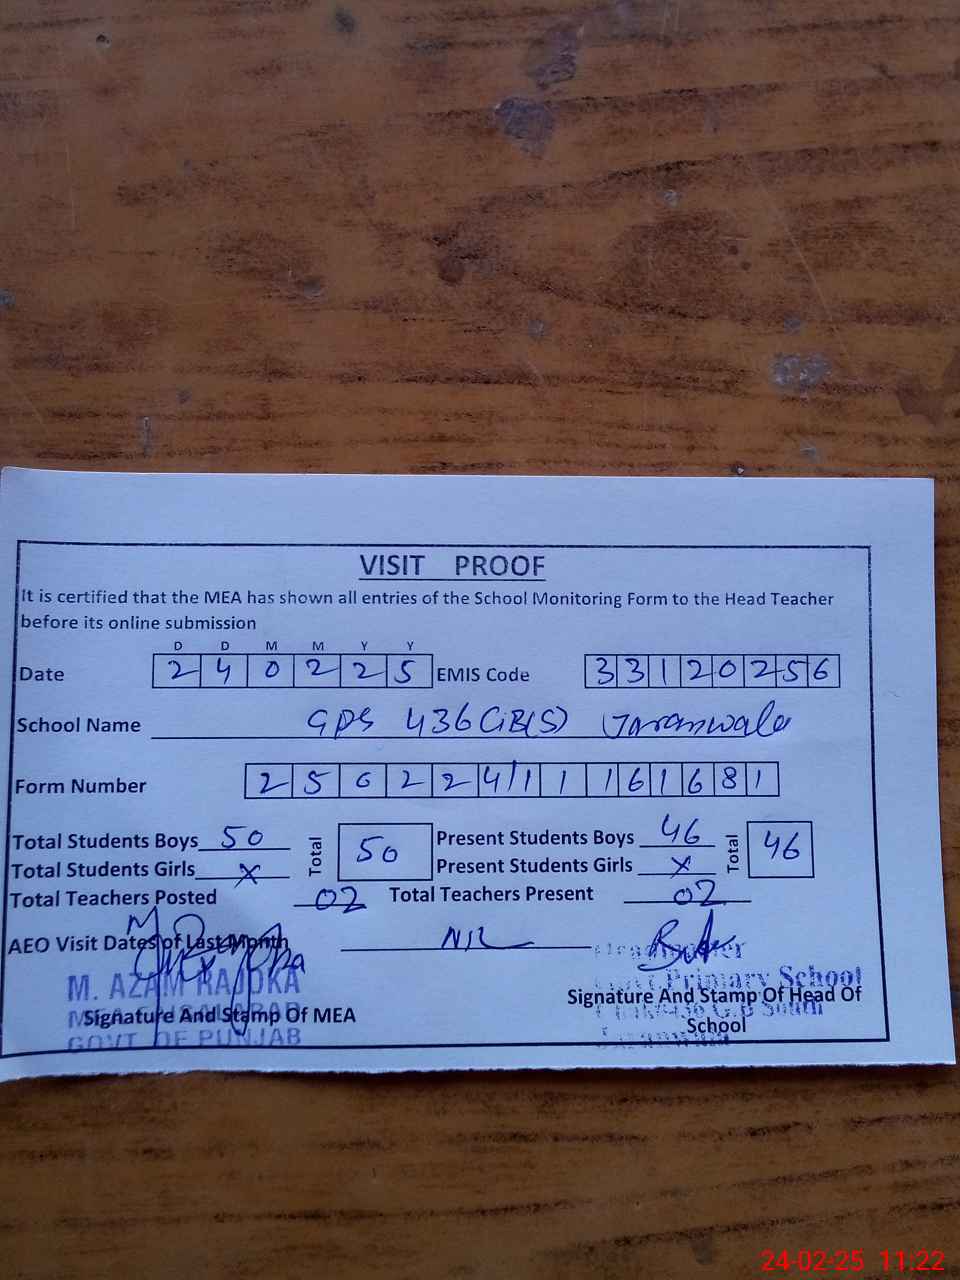 VISIT PROOF
It is certified that the MEA has shown all entries of the School Monitoring Form to the Head Teacher
before its online submission
D D M M Y Y
Date 2 4 0 2 2 5 EMIS Code 3 3 1 2 0 2 5 6
School Name GPS 436 GB(S) Jaranwala
Form Number 2 5 0 2 2 4 / 1 1 1 6 1 6 8 1
Total Students Boys 50 Total 50 Present Students Boys 46 Total 46
Total Students Girls x Present Students Girls x
Total Teachers Posted 02 Total Teachers Present 02
AEO Visit Dates of Last Month NIL
M. AZAM RAJOKA
Signature And Stamp Of MEA
GOVT OF PUNJAB
Headteacher
Govt Primary School
Signature And Stamp Of Head Of
Chak#436 G.B South
School
Jaranwala
24-02-25 11:22